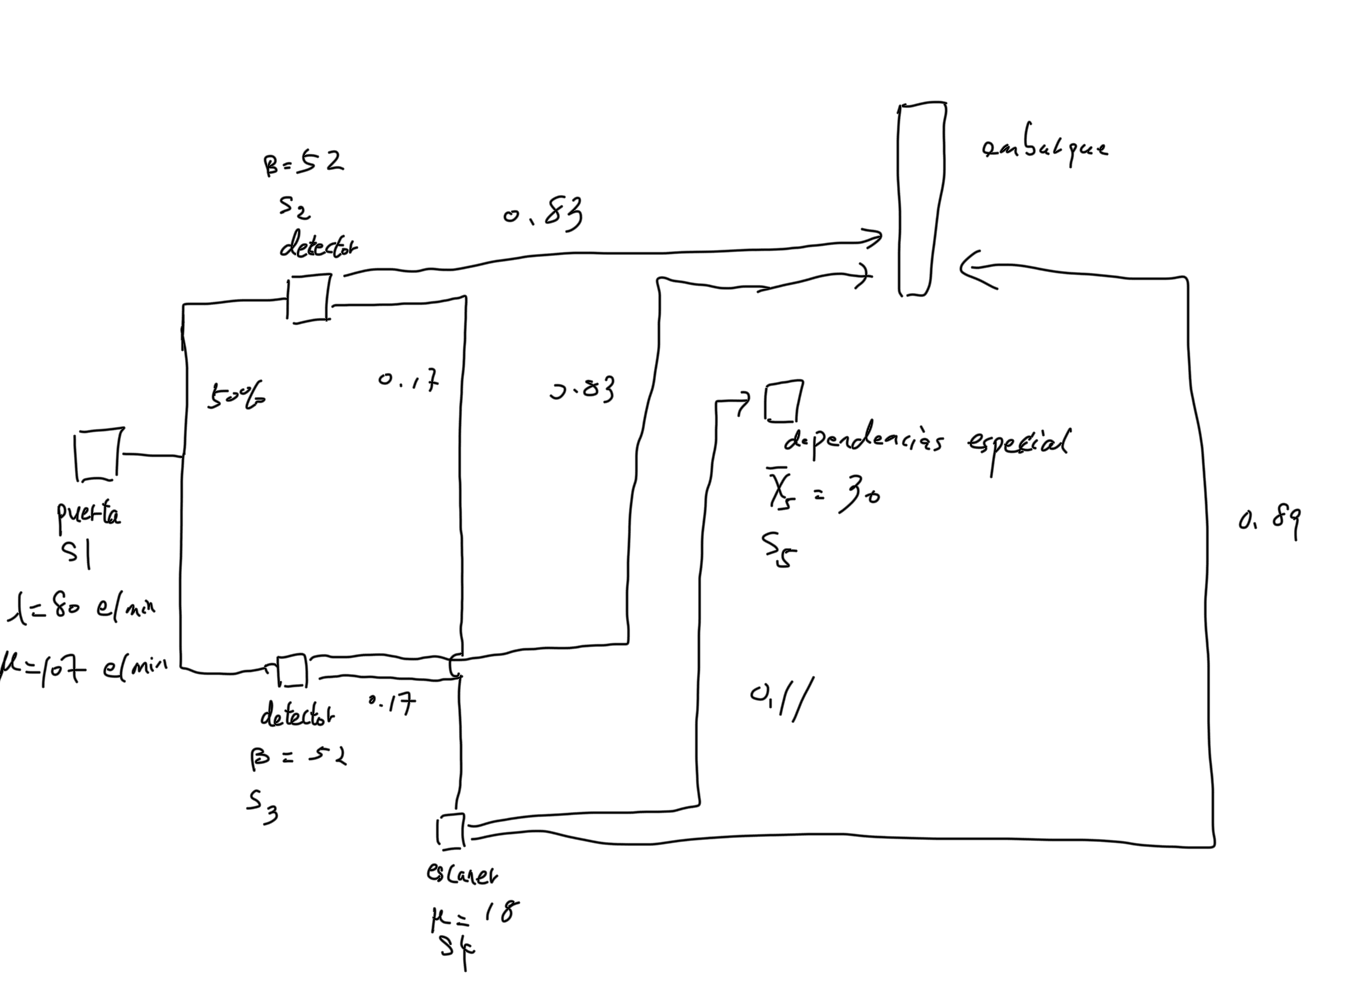 β=52
S2
detector
0.83
embarque
50%
0.17
0.83
dependencias especial
X̅5 = 30
S5
0.89
puerta
S1
λ=80 e/min
μ=107 e/min
0.17
detector
β = 52
S3
0,11
escaner
μ= 18
S4